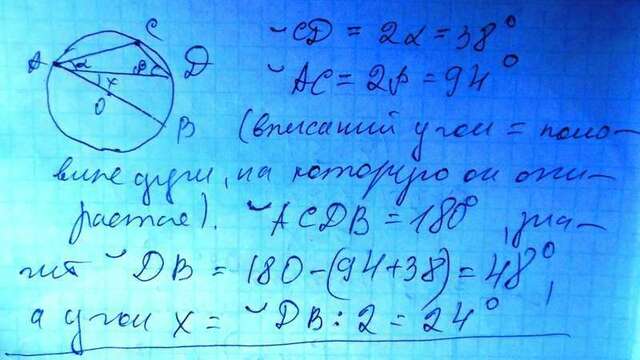 C
A α β D
x
O
B
◡CD = 2α = 38°
◡AC = 2β = 94°
(вписаний угол = поло-
вине дуги, на которую он опи-
рается). ◡ACDB = 180°, зна-
чит ◡DB = 180-(94+38) = 48°,
а угол x = ◡DB : 2 = 24°